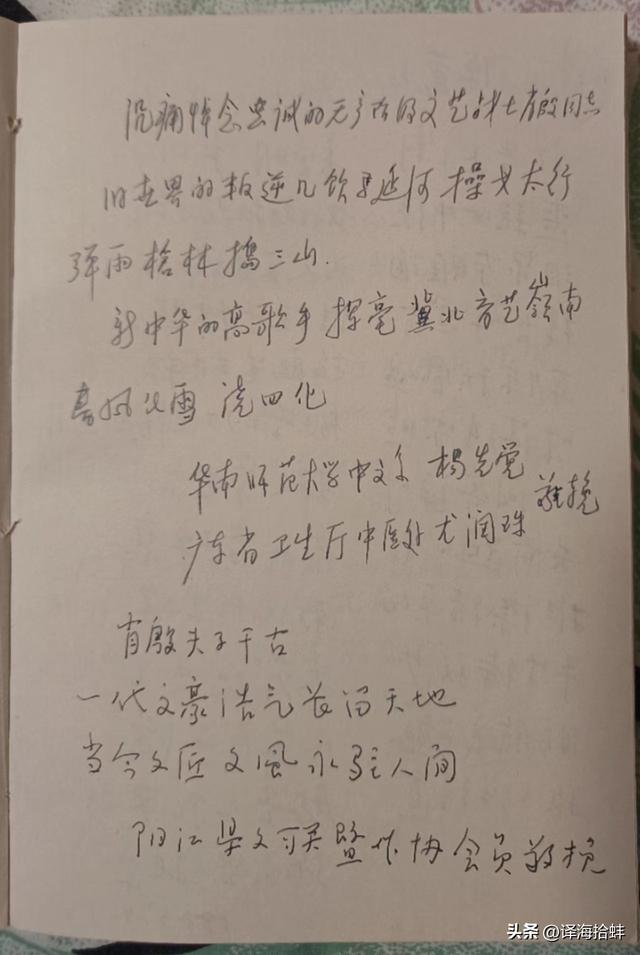 沉痛悼念忠诚的无产阶级文艺战士有殷同志
旧世界的叛逆儿饮马延河 操戈太行
弹雨枪林捣三山.
新中华的高歌手 挥毫冀北 育艺嶺南
春风化雪 浇四化
华南师范大学中文系 杨先党
广东省卫生厅中医处 尤润珠 敬挽
有殷夫子千古
一代文豪浩气长留天地
当今文匠文風永駐人间
阳江县文联暨作协会员敬挽
头条 @译海拾蚌